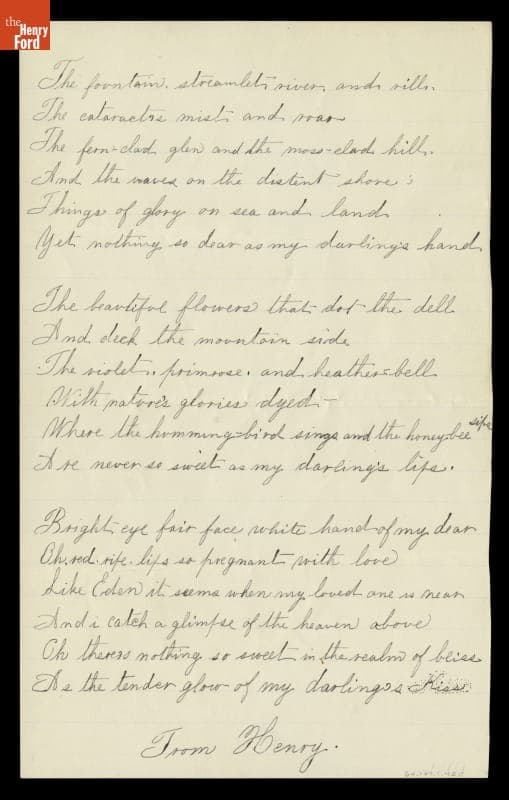 the
Henry
Ford
The fountain. streamlet, river, and rill.
The cataracts mist and roar
The fern-clad glen and the moss-clad hill.
And the waves on the distent shore;
Things of glory on sea and land
Yet nothing so dear as my darling,s hand.
The beautiful flowers that dot the dell
And deck the mountain side
The violet, primrose, and heather=bell
With nature,s glories dyed—
Where the humming=bird sings and the honey-bee sips
Are never so sweet as my darling,s lips.
Bright eye fair face white hand of my dear
Oh, red, ripe, lips so pregnant with love
Like Eden it seems when my loved one is near
And i catch a glimpse of the heaven above
Oh there,s nothing so sweet in the realm of bliss
As the tender glow of my darling,s Kiss
From Henry.